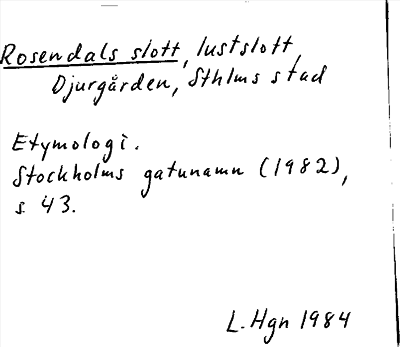 Rosendals slott, lustslott,
Djurgården, Sthlms stad
Etymologi.
Stockholms gatunamn (1982),
s. 43.
L. Hgn 1984